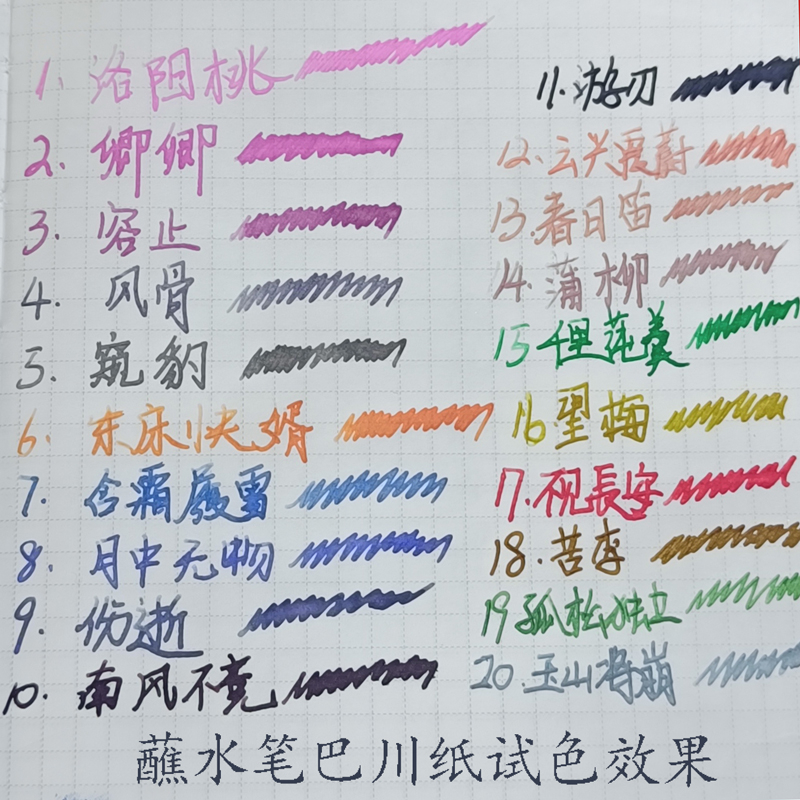 1. 洛阳桃
2. 卿卿
3. 容止
4. 风骨
5. 窥豹
6. 东床快婿
7. 含霜履雪
8. 月中无物
9. 伤逝
10. 南风不竞
11. 游刃
12. 云兴霞蔚
13. 春日笛
14. 蒲柳
15 千里莼羹
16 望梅
17. 不视長安
18. 苦李
19 孤松独立
20. 玉山将崩
蘸水笔巴川纸试色效果